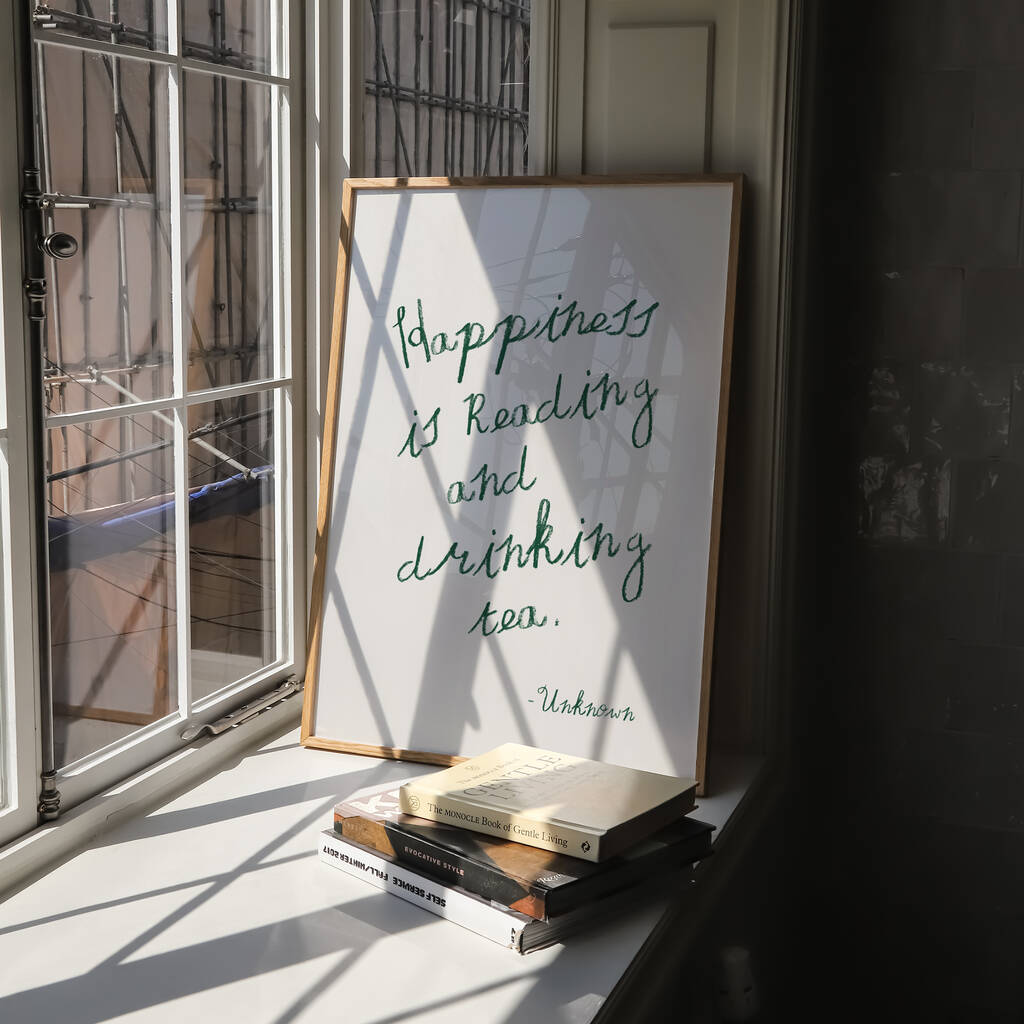 Happiness
is Reading
and
drinking
tea.
-Unknown
The MONOCLE Book of
GENTLE
LIVING
The MONOCLE Book of Gentle Living
EVOCATIVE STYLE
SELF SERVICE FALL/WINTER 2017